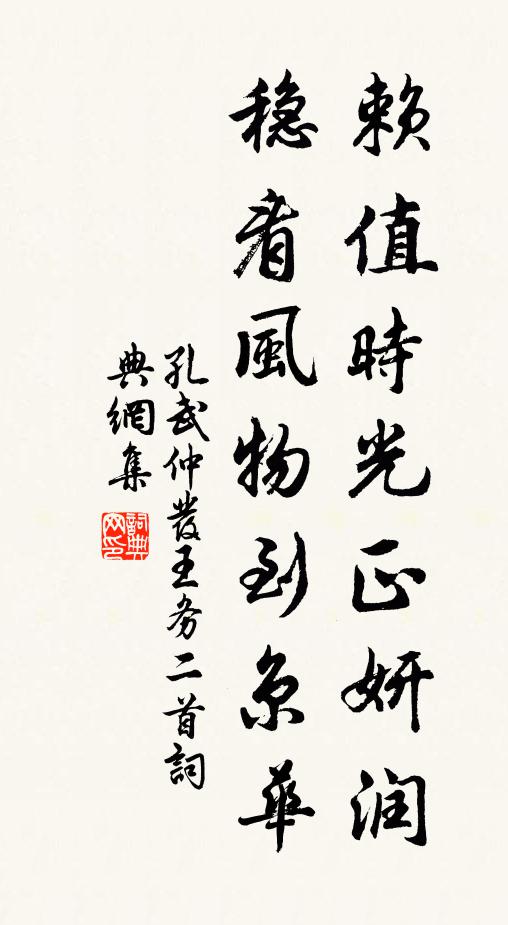 赖值時光正妍润
稳看風物到京華
孔武仲發王务二首詞
典網集
詞典网印